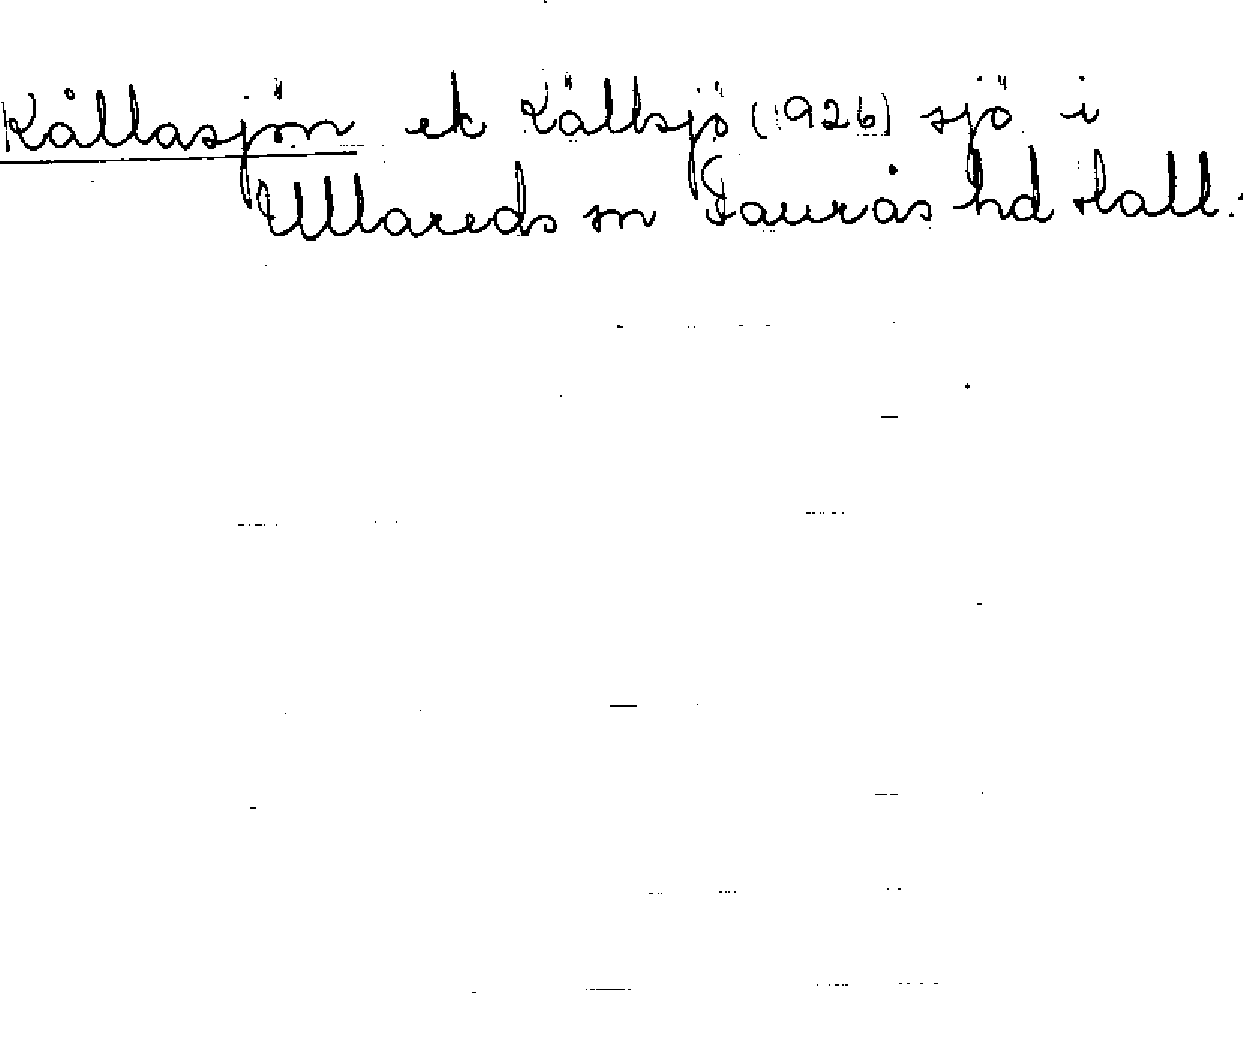 Kållasjön ek Källsjö (1926) sjö i
Ullareds sn Faurås hd Hall.